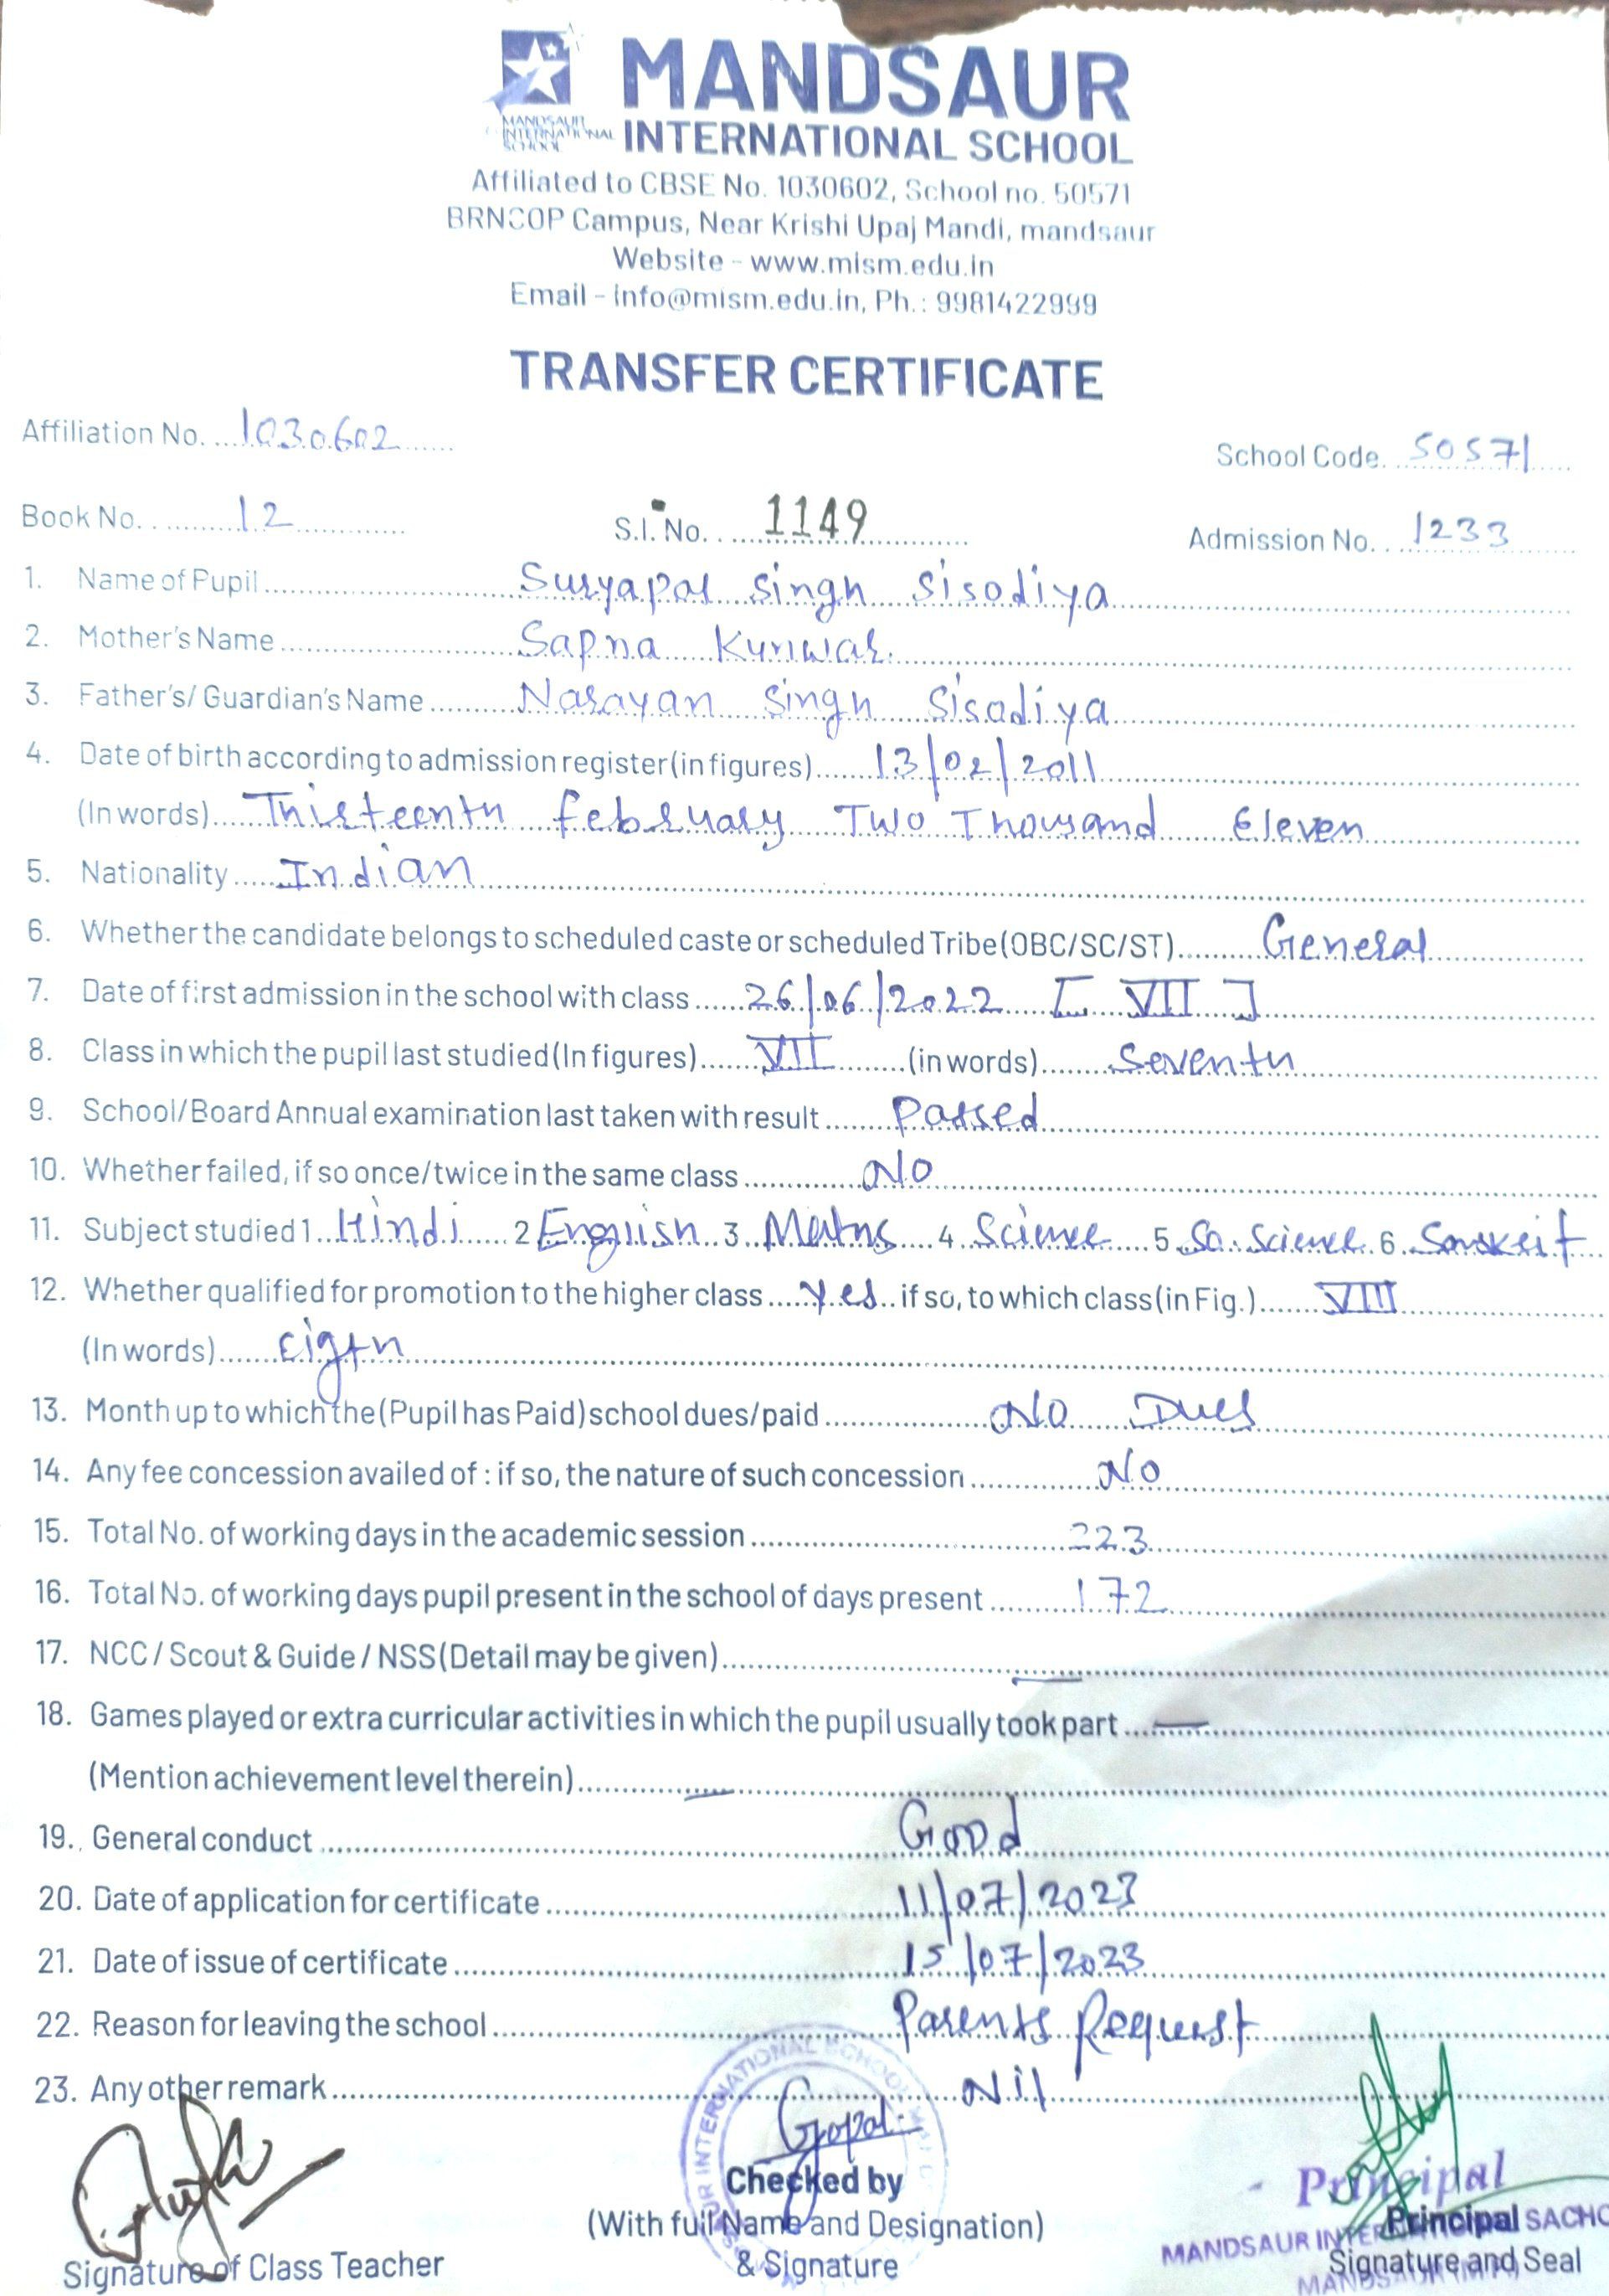 MANDSAUR
INTERNATIONAL SCHOOL
MANDSAUR
INTERNATIONAL
SCHOOL
Affiliated to CBSE No. 1030602, School no. 50571
BRNCOP Campus, Near Krishi Upaj Mandi, mandsaur
Website - www.mism.edu.in
Email - info@mism.edu.in, Ph.: 9981422999
TRANSFER CERTIFICATE
Affiliation No. 1030602
School Code. 50571
Book No. 12 S.I. No. 1149 Admission No. 1233
1. Name of Pupil Suryapal Singh Sisodiya
2. Mother's Name Sapna Kunwar.
3. Father's/ Guardian's Name Narayan Singh Sisodiya
4. Date of birth according to admission register (in figures) 13/02/2011
(In words) Thirteenth february Two Thousand Eleven
5. Nationality Indian
6. Whether the candidate belongs to scheduled caste or scheduled Tribe (OBC/SC/ST) General
7. Date of first admission in the school with class 26/06/2022 [VII]
8. Class in which the pupil last studied (In figures) VII (in words) Seventh
9. School/Board Annual examination last taken with result Passed
10. Whether failed, if so once/twice in the same class No
11. Subject studied 1 Hindi 2 English 3 Maths 4 Science 5 So. Science 6 Sanskrit
12. Whether qualified for promotion to the higher class Yes if so, to which class (in Fig.) VIII
(In words) Eigth
13. Month up to which the (Pupil has Paid) school dues/paid No Dues
14. Any fee concession availed of : if so, the nature of such concession No
15. Total No. of working days in the academic session 223
16. Total No. of working days pupil present in the school of days present 172
17. NCC / Scout & Guide / NSS (Detail may be given) —
18. Games played or extra curricular activities in which the pupil usually took part —
(Mention achievement level therein) —
19. General conduct Good
20. Date of application for certificate 11/07/2023
21. Date of issue of certificate 15/07/2023
22. Reason for leaving the school Parents Request
23. Any other remark Nil
Gopal
Checked by
(With full Name and Designation)
& Signature
Signature of Class Teacher
Principal
Principal
Signature and Seal